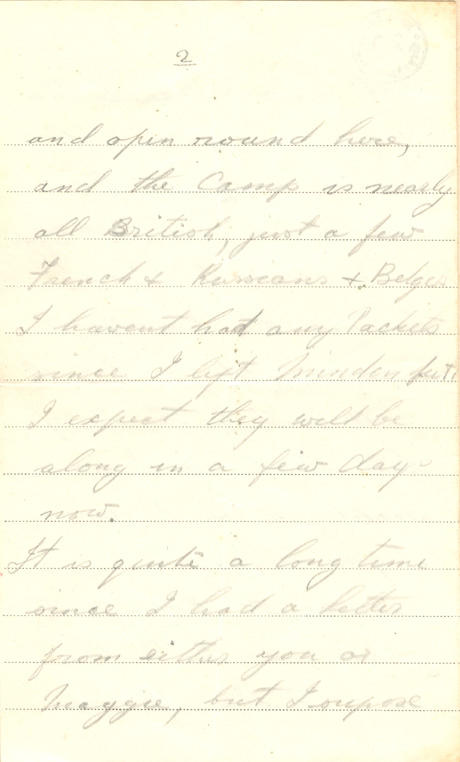 2
and open round here,
and the Camp is nearly
all British, just a few
French & Russians & Belges
I havent had any Packets
since I left Minden but
I expect they will be
along in a few day
now.
It is quite a long time
since I had a letter
from either you or
Maggie, but I supose